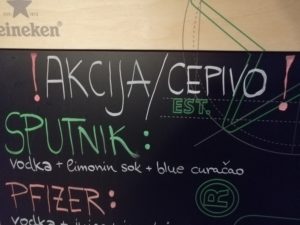 Heineken
! AKCIJA/CEPIVO !
EST.
SPUTNIK:
vodka + limonin sok + blue curaçao
PFIZER:
vodka +
®